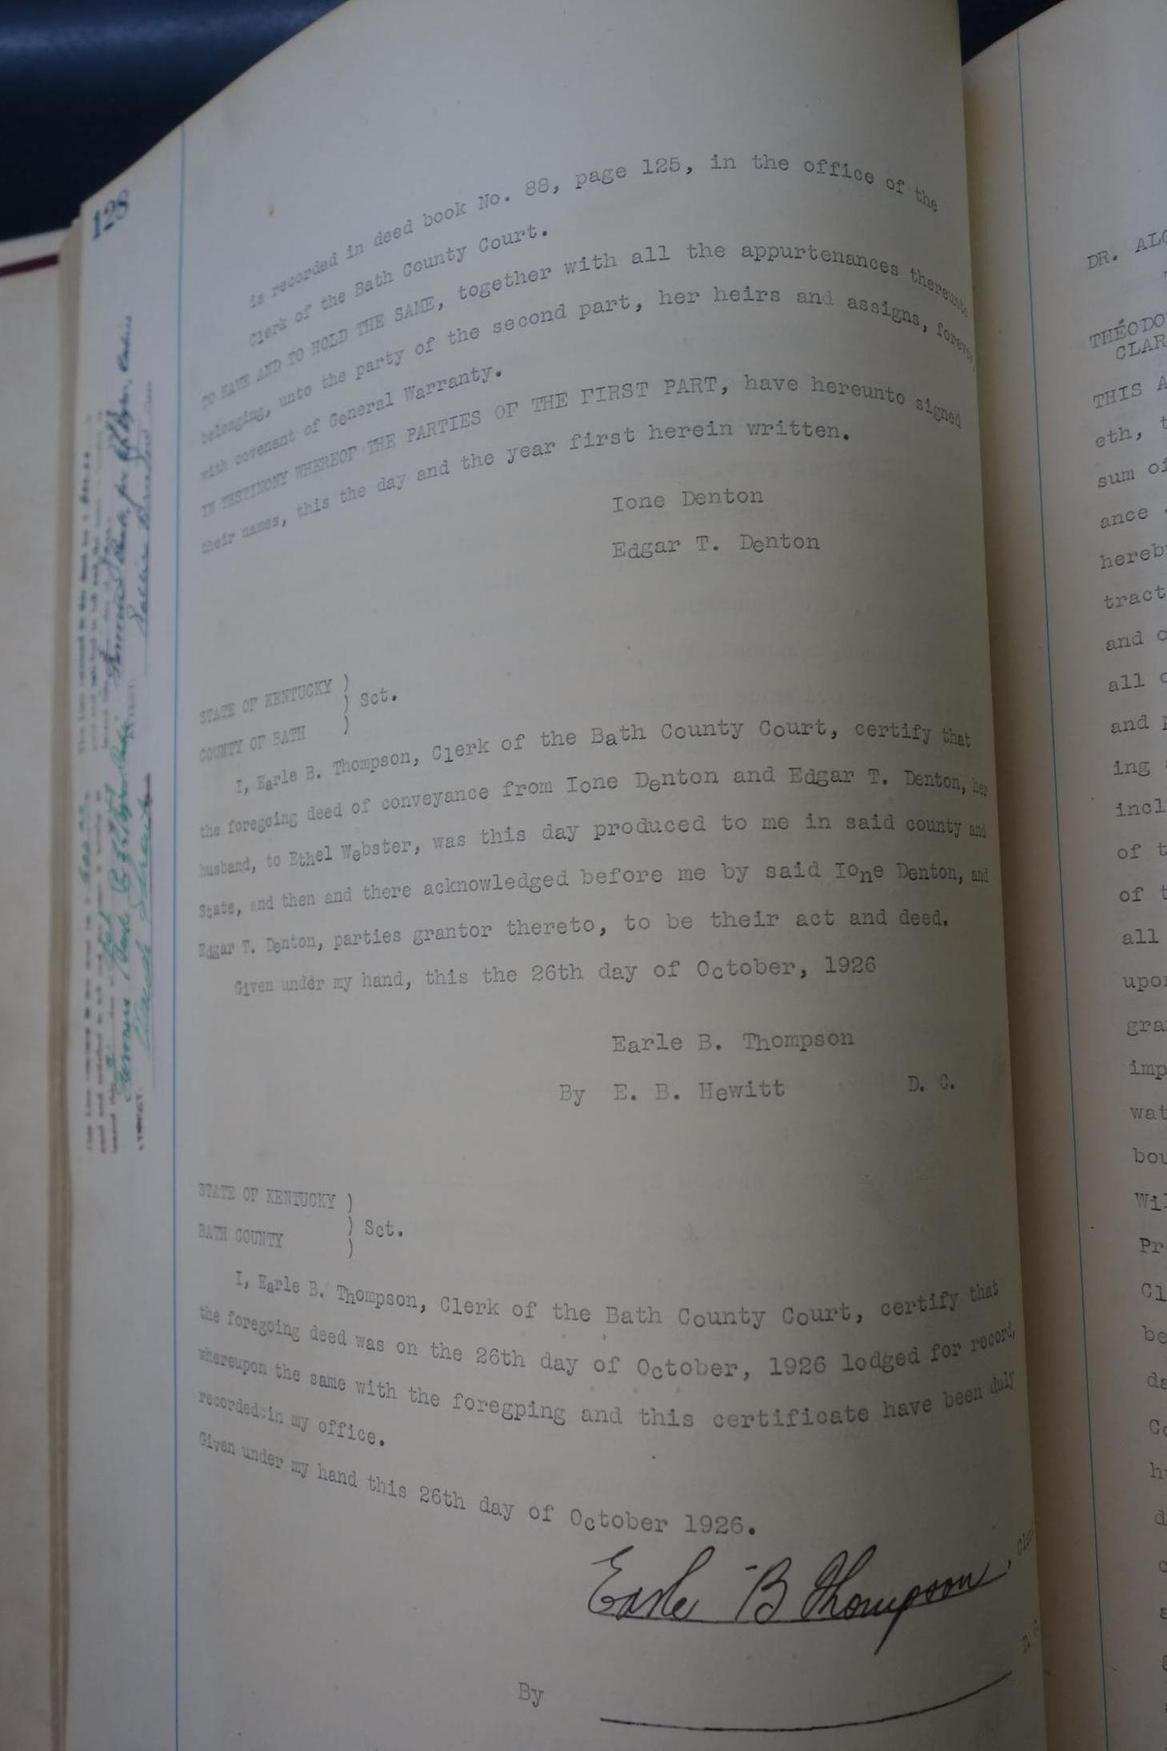 128
is recorded in deed book No. 88, page 125, in the office of the
Clerk of the Bath County Court.
TO HAVE AND TO HOLD THE SAME, together with all the appurtenances thereunto
belonging, unto the party of the second part, her heirs and assigns, forever,
with covenant of General Warranty.
IN TESTIMONY WHEREOF THE PARTIES OF THE FIRST PART, have hereunto signed
their names, this the day and the year first herein written.
Ione Denton
Edgar T. Denton
STATE OF KENTUCKY )
) Sct.
COUNTY OF BATH )
I, Earle B. Thompson, Clerk of the Bath County Court, certify that
the foregoing deed of conveyance from Ione Denton and Edgar T. Denton, her
husband, to Ethel Webster, was this day produced to me in said county and
State, and then and there acknowledged before me by said Ione Denton, and
Edgar T. Denton, parties grantor thereto, to be their act and deed.
Given under my hand, this the 26th day of October, 1926
Earle B. Thompson
By E. B. Hewitt D. C.
STATE OF KENTUCKY )
) Sct.
BATH COUNTY )
I, Earle B. Thompson, Clerk of the Bath County Court, certify that
the foregoing deed was on the 26th day of October, 1926 lodged for record,
whereupon the same with the foregping and this certificate have been duly
recorded:in my office.
Given under my hand this 26th day of October 1926.
Earle B Thompson,
By
DR.
THÉODO
CLAR
THIS A
eth, t
sum of
ance
hereb
tract
and
all
and
ing
incl
of t
of t
all
upo
gra
imp
wat
bou
Wil
Pr
Cl
be
da